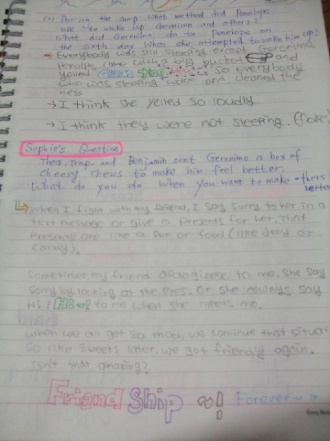 During the camp What method did Penelope
use to wake up Geronimo and others?
What did Geronimo do to Penelope on
the sixth day when she attempted to wake him up?
→ Everybody was still sleeping except Geronimo
with a big bucket
and
yelled so everybody
was and cleaned the
mess
→ I think she yelled so loudly.
→ I think they were not sleeping.
Sophie's Question
Thea, Trap and Benjamin sent Geronimo a box of
cheesy chews to make him feel better.
What do you do when you want to make others
better
When I fight with my friend, I say sorry to her in a
text message or give a presents for her. That
presents are like a pen or food (like
candy).
Sometimes my friend apologizes to me. She say
sorry by looking at the eyes. Or she always say
Hi! to me when she meets me.
When we all get so mad, we continue that situation
so like sweets later, we got friendly again.
Isn't that amazing?
Friend Ship ~! Forever